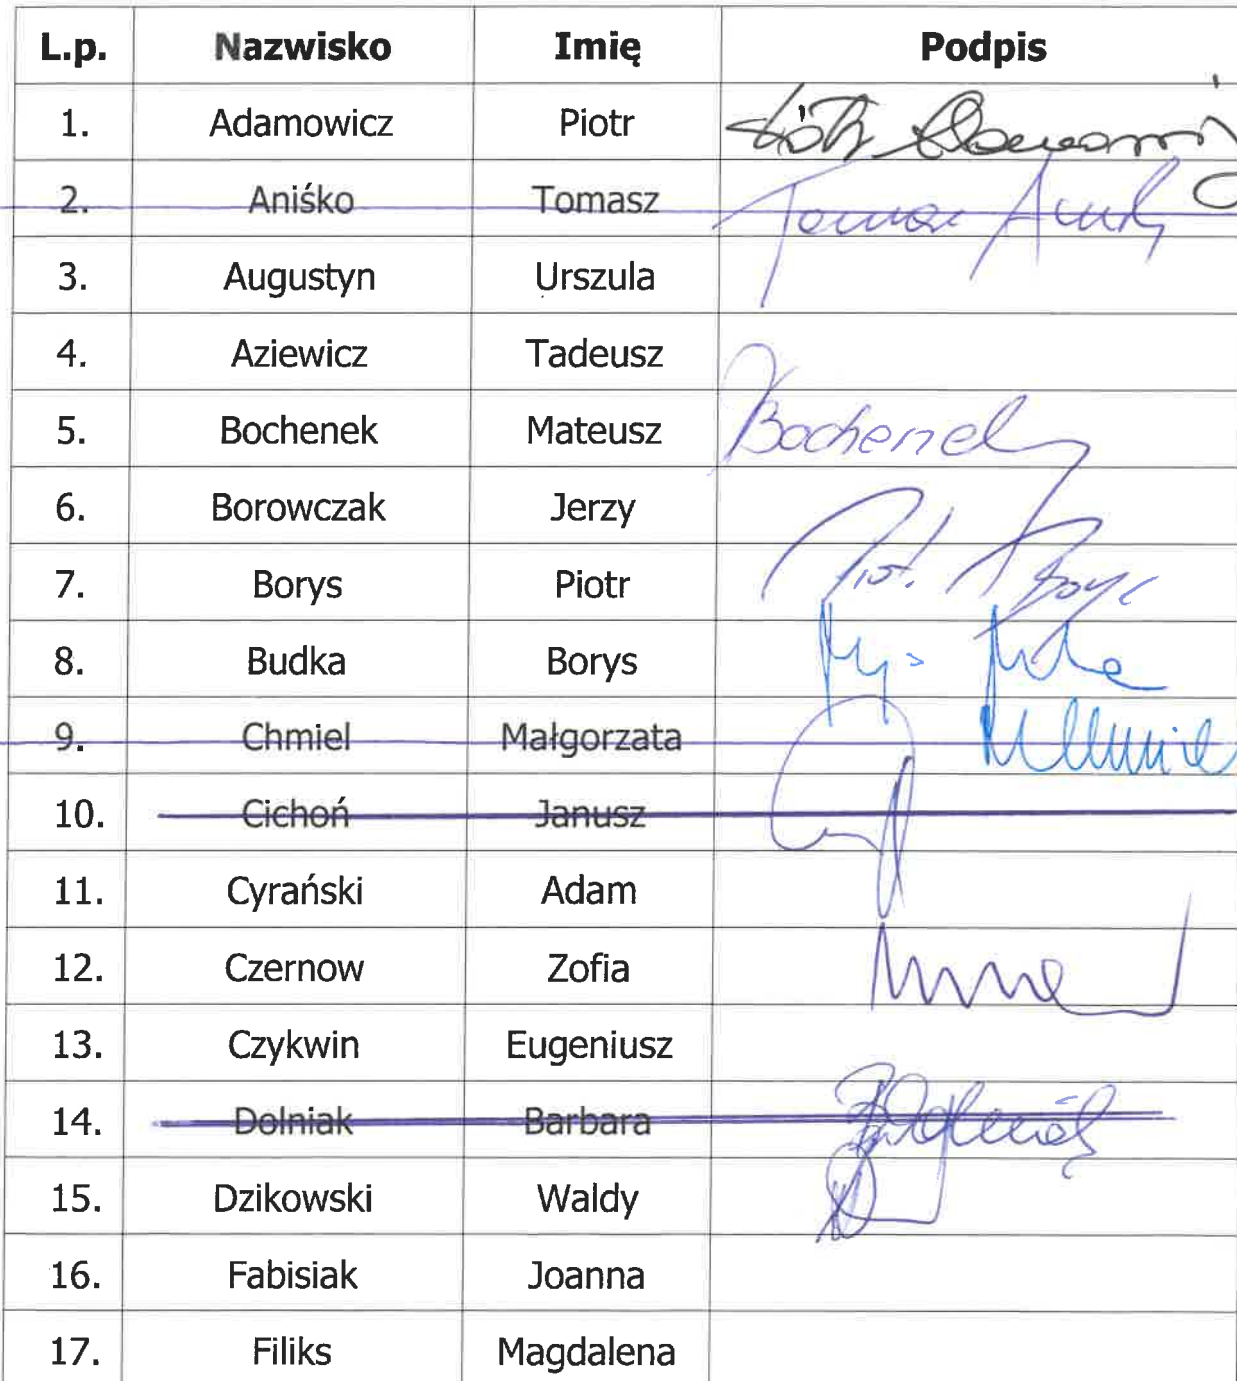 L.p. Nazwisko Imię Podpis
1. Adamowicz Piotr
2. Aniśko Tomasz
3. Augustyn Urszula
4. Aziewicz Tadeusz
5. Bochenek Mateusz Bochenek
6. Borowczak Jerzy
7. Borys Piotr
8. Budka Borys
9. Chmiel Małgorzata
10. Cichoń Janusz
11. Cyrański Adam
12. Czernow Zofia
13. Czykwin Eugeniusz
14. Dolniak Barbara
15. Dzikowski Waldy
16. Fabisiak Joanna
17. Filiks Magdalena